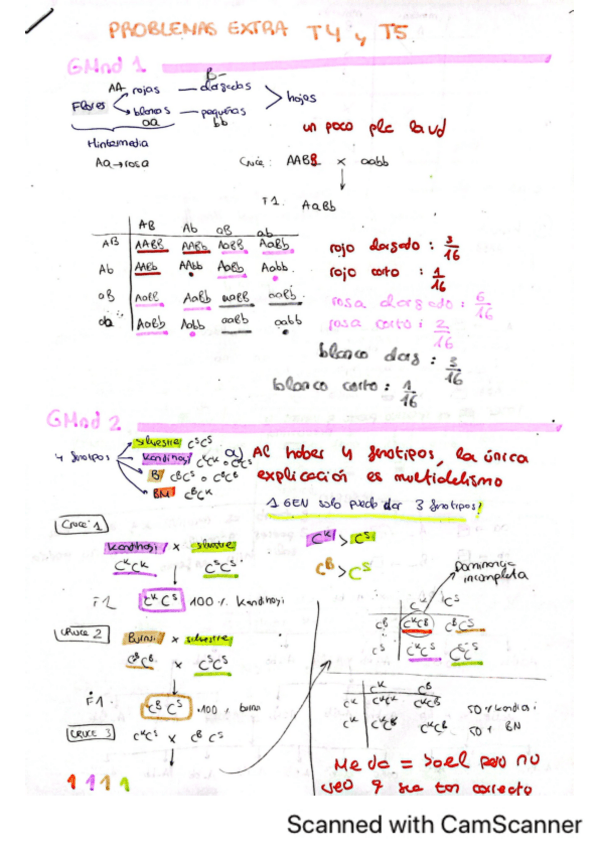 PROBLEMAS EXTRA T4 y T5
GMnd 1
B-
AA rojas — alargadas
Flores > hojas
blancas — pequeñas
aa bb
Hintermedia
Aa → rosa
un poco plc la vd
Cruce: AABB x aabb
F1. AaBb
AB Ab aB ab
AB AABB AABb AaBB AaBb
Ab AABb AAbb AaBb Aabb
aB AaBB AaBb aaBB aaBb
ab AaBb Aabb aaBb aabb
rojo alargado : 3/16
rojo corto : 1/16
rosa alargado : 6/16
rosa corto : 2/16
blanco alarg : 3/16
blanco corto : 1/16
GMnd 2
4 fenotipos
silvestre CˢCˢ
Kandhari CᴷCᴷ o CᴷCˢ
B CᴮCˢ o CᴮCᴮ
BN CᴮCᴷ
a) Al haber 4 fenotipos, la única
explicación es multialelismo
1 GEN solo puede dar 3 fenotipos!
Cruce 1
Kandhari x silvestre
CᴷCᴷ CˢCˢ
F1 CᴷCˢ 100 % Kandhari
Cᴷ > Cˢ
Cᴮ > Cˢ
CRUCE 2
x silvestre
CᴮCᴮ x CˢCˢ
F1. CᴮCˢ 100 %
CRUCE 3 CᴷCˢ x CᴮCˢ
1 1 1 1
Dominancia
incompleta
Cᴷ Cˢ
Cᴮ CᴷCᴮ CᴮCˢ
Cˢ CᴷCˢ CˢCˢ
Cᴷ Cᴮ
Cᴷ CᴷCᴷ CᴷCᴮ
Cᴷ CᴷCᴷ CᴷCᴮ
50 %
50 % BN
Me da = pero no
veo q sea tan correcto
Scanned with CamScanner